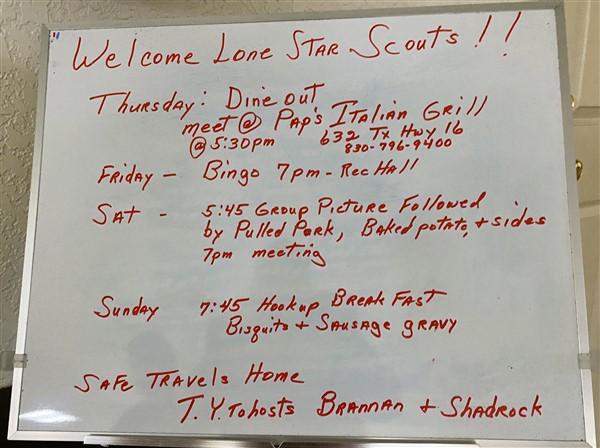 Welcome Lone Star Scouts!!
Thursday: Dine out
meet @ Pap's Italian Grill
@ 5:30pm 632 Tx Hwy 16
830-796-9400
Friday - Bingo 7pm - Rec Hall
Sat - 5:45 Group Picture Followed
by Pulled Pork, Baked potato, + sides
7pm meeting
Sunday 7:45 Hookup BreakFast
Bisquits + Sausage gravy
Safe Travels Home
T.Y. to hosts Brannan + Shadrock